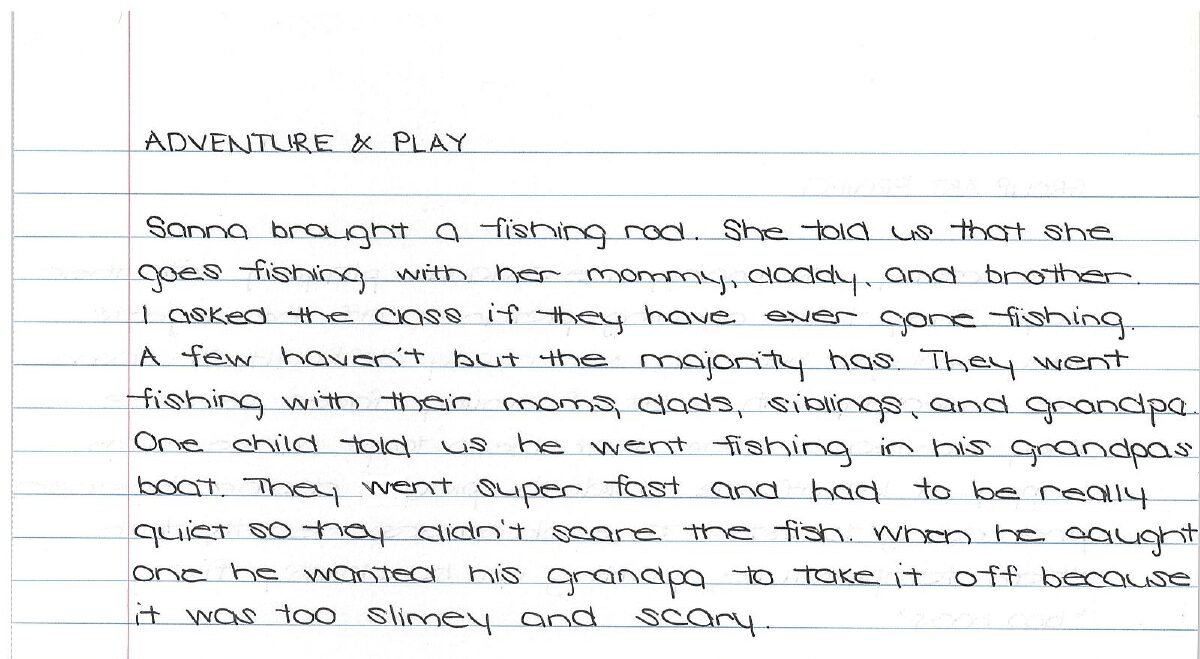 ADVENTURE & PLAY
Sanna brought a fishing rod. She told us that she
goes fishing with her mommy, daddy, and brother.
I asked the class if they have ever gone fishing.
A few haven't but the majority has. They went
fishing with their moms, dads, siblings, and grandpa.
One child told us he went fishing in his grandpas
boat. They went super fast and had to be really
quiet so they didn't scare the fish. When he caught
one he wanted his grandpa to take it off because
it was too slimey and scary.